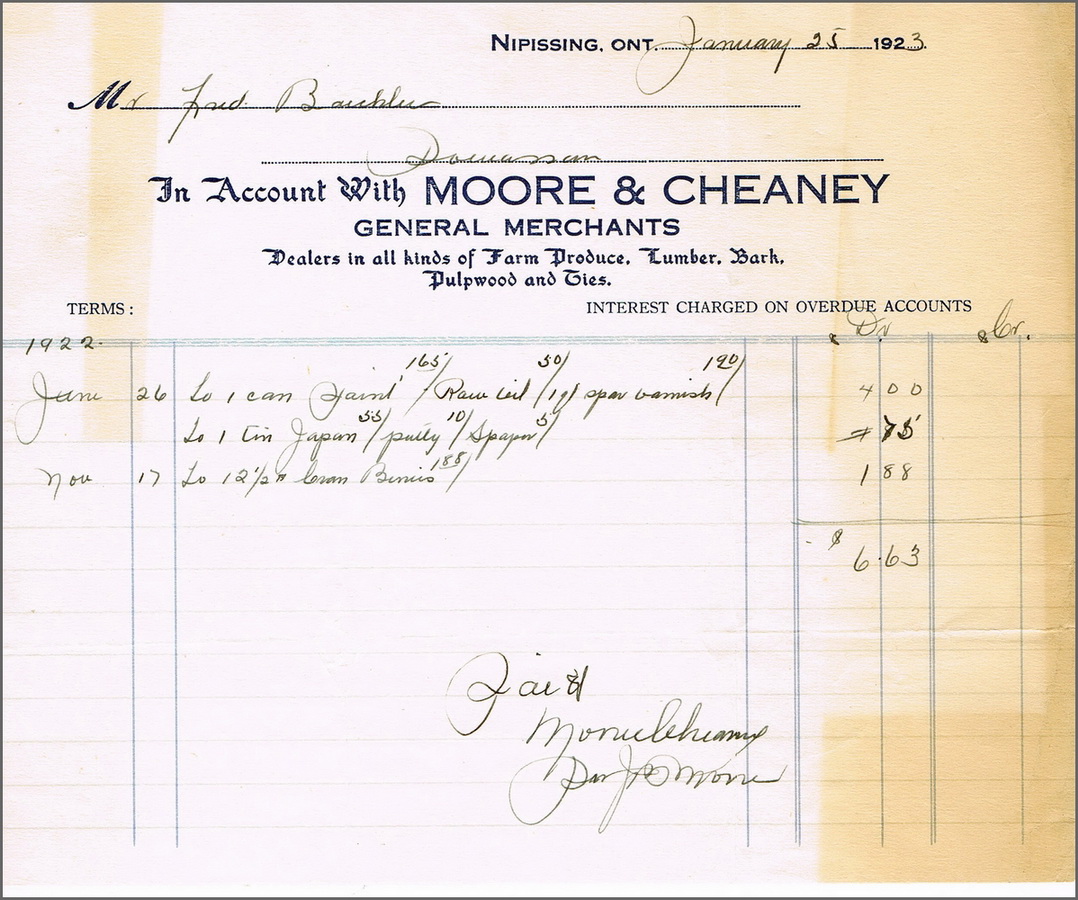 NIPISSING, ONT. January 25 1923.
Mr Fred
In Account With MOORE & CHEANEY
GENERAL MERCHANTS
Dealers in all kinds of Farm Produce, Lumber, Bark,
Pulpwood and Ties.
TERMS: INTEREST CHARGED ON OVERDUE ACCOUNTS
1922. $ Dr $ Cr.
June 26 To 1 can Paint 165/ Raw oil 50/ 1 g/ spar varnish 190/ 4 00
To 1 tin Japan 55/ putty 10/ S paper 5/ 75
Nov 17 To 12 1/2 # Cran Berries 188/ 1 88
$ 6.63
Paid
Moore Cheaney
Per Moore